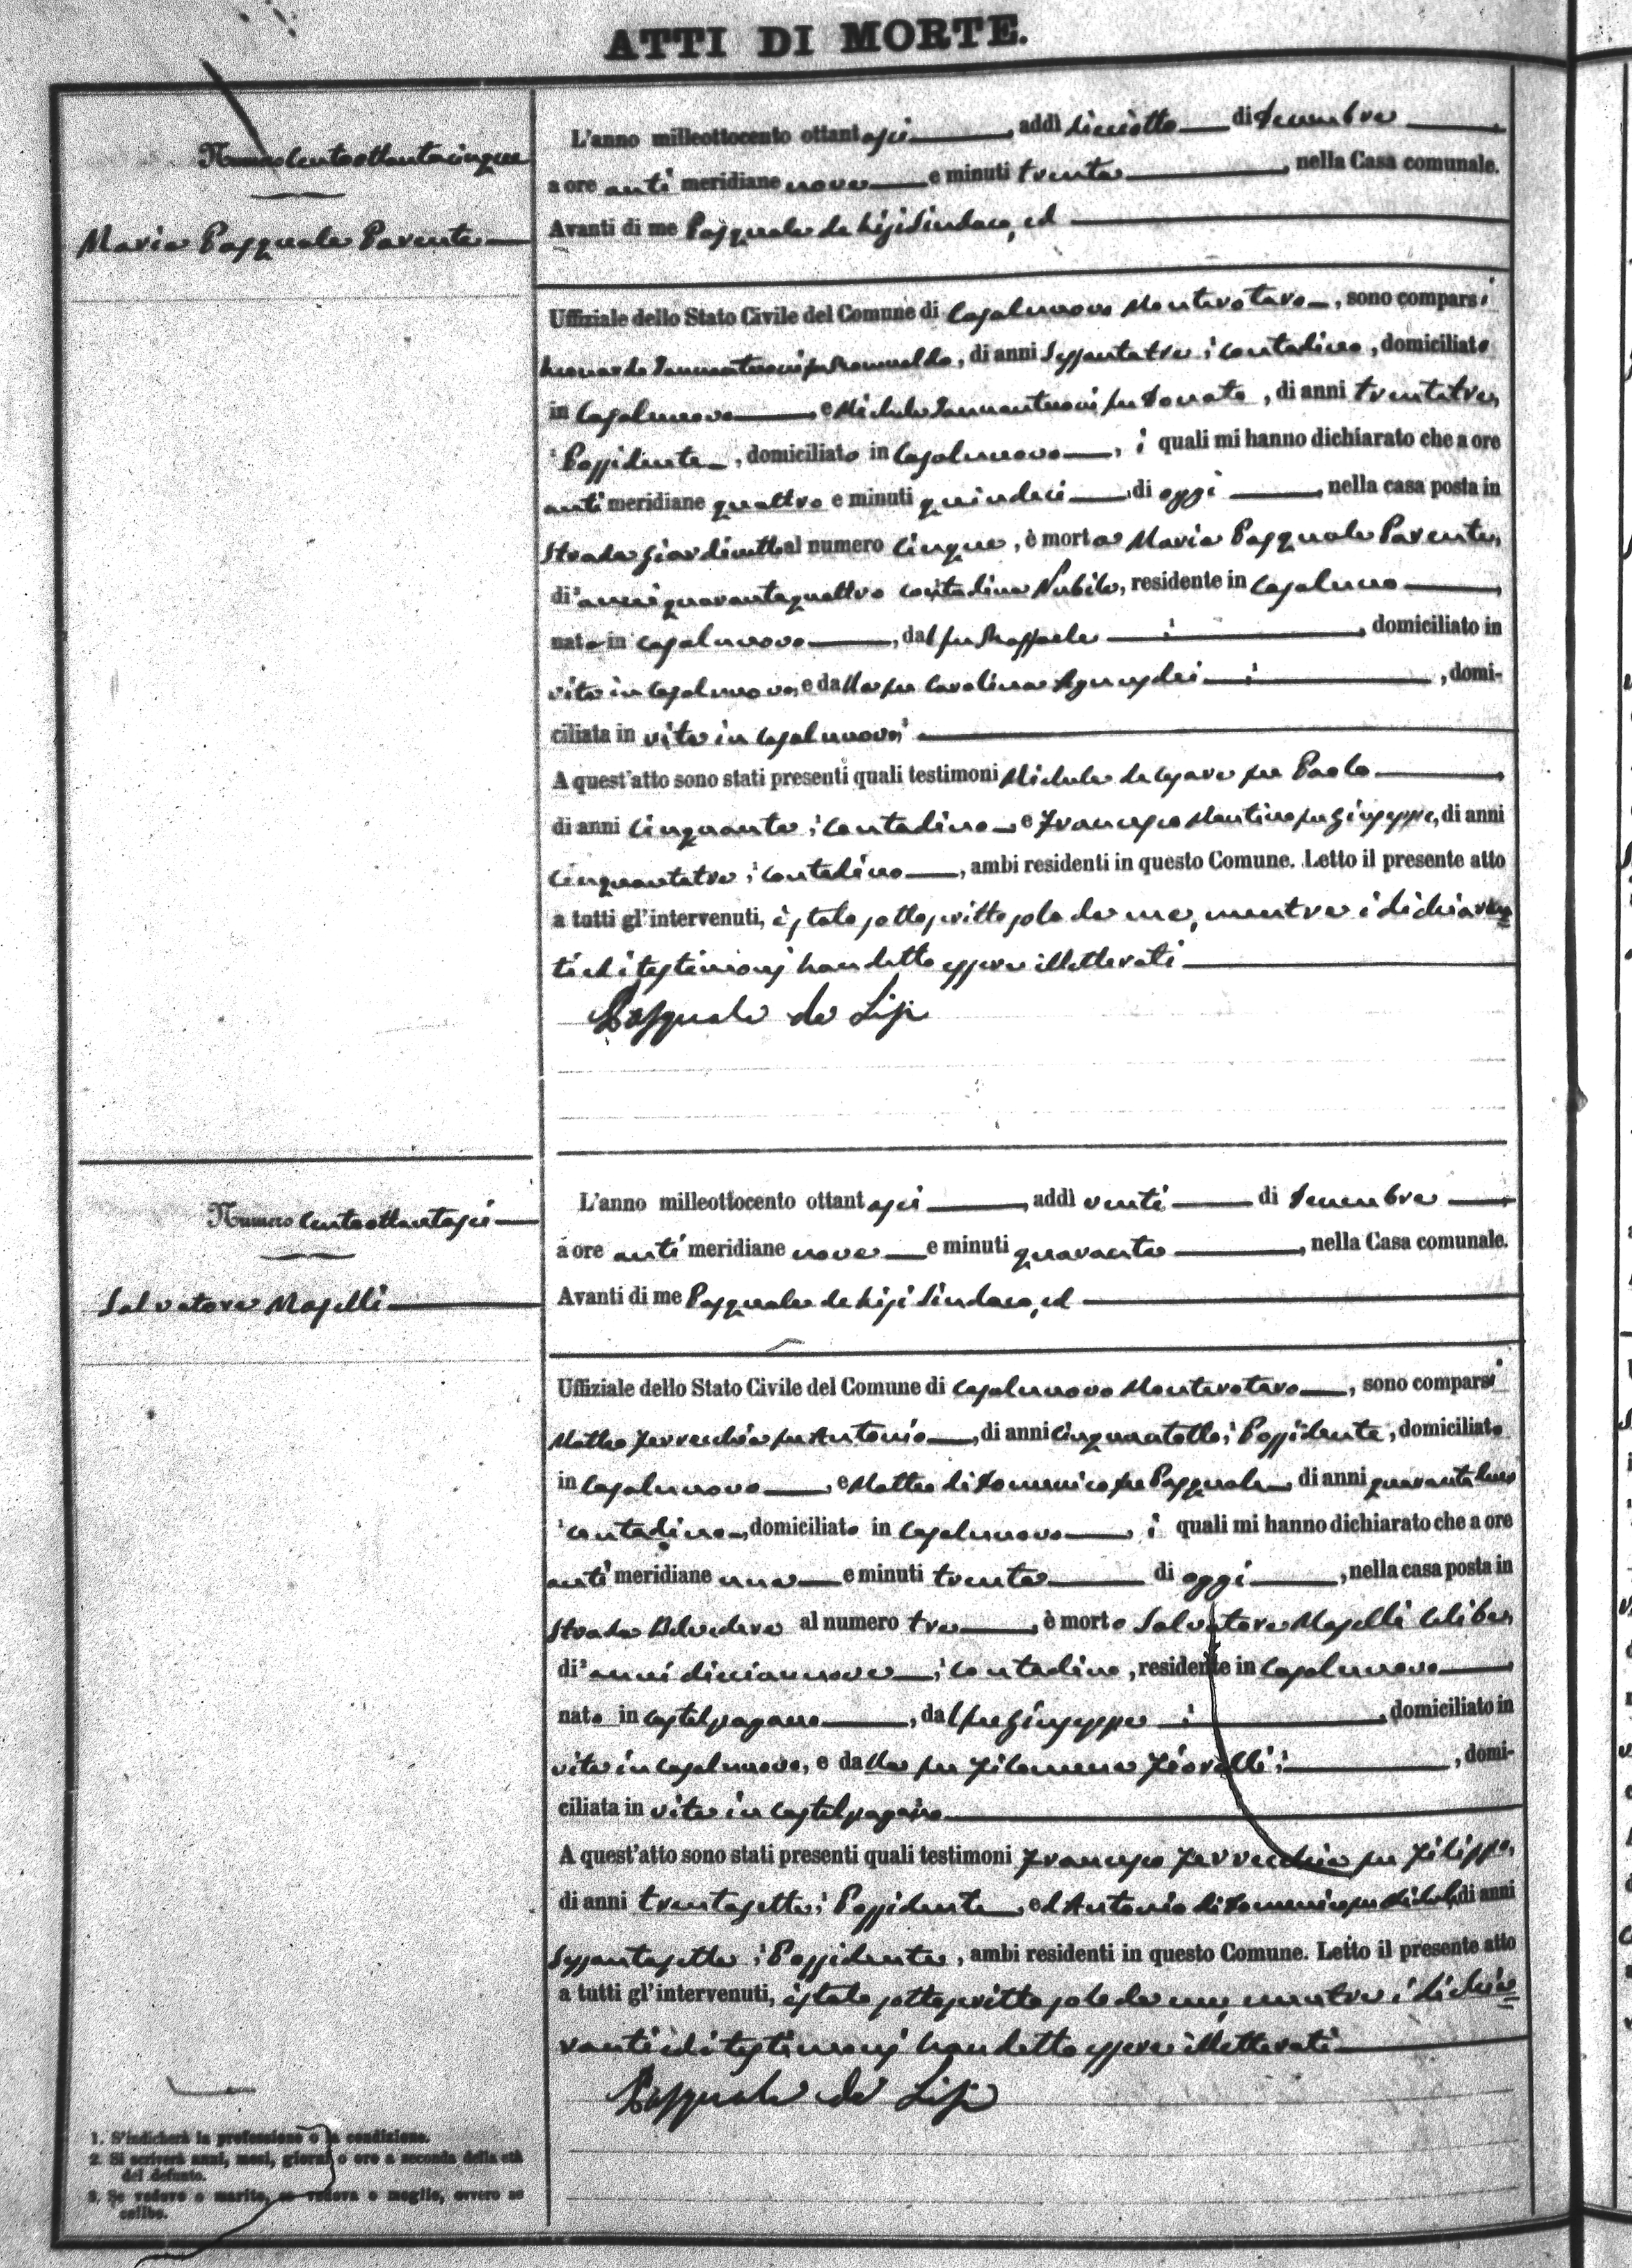 ATTI DI MORTE.
Numero Centoottantacinque
Maria Pasquale Parente
L'anno milleottocento ottantasei, addì dieciotto di Decembre
a ore anti meridiane nove e minuti trenta, nella Casa comunale.
Avanti di me Pasquale de Lisi Sindaco, ed
Uffiziale dello Stato Civile del Comune di Casalnuovo Monterotaro, sono comparsi
Leonardo Iannantuoni fu Romualdo, di anni Sessantatre, contadino, domiciliato
in Casalnuovo e Michele Iannantuoni fu Donato, di anni trentatre,
Possidente, domiciliato in Casalnuovo, i quali mi hanno dichiarato che a ore
anti meridiane quattro e minuti quindeci di oggi, nella casa posta in
Strada Giardinetto al numero Cinque, è morta Maria Pasquale Parente,
di anni quarantaquattro contadina Nubile, residente in Casalnuo
nata in Casalnuovo, dal fu Raffaele, domiciliato in
vita in Casalnuovo, e dalla fu Carolina, domi-
ciliata in vita in Casalnuovo
A quest'atto sono stati presenti quali testimoni Michele de Cesare fu Paolo
di anni Cinquanta, contadino e Francesco Mantino fu Giuseppe, di anni
Cinquantatre, contadino, ambi residenti in questo Comune. Letto il presente atto
a tutti gl'intervenuti, è stato sottoscritto solo da me, mentre i dichiaran=
ti ed i testimonj han detto essere illetterati
Pasquale de Lisi
Numero Centoottantasei
Salvatore Maselli
L'anno milleottocento ottantasei, addì venti di Decembre
a ore anti meridiane nove e minuti quaranta, nella Casa comunale.
Avanti di me Pasquale de Lisi Sindaco, ed
Uffiziale dello Stato Civile del Comune di Casalnuovo Monterotaro, sono comparsi
Matteo Ferrecchia fu Antonio, di anni Cinquantotto, Possidente, domiciliato
in Casalnuovo e Matteo di Domenico fu Pasquale, di anni
contadino, domiciliato in Casalnuovo, i quali mi hanno dichiarato che a ore
anti meridiane una e minuti trenta di oggi, nella casa posta in
Strada Belvedere al numero tre, è morto Salvatore Maselli Celibe,
di anni diciannove, contadino, residente in Casalnuovo
nato in Castelpagano, dal fu Giuseppe, domiciliato in
vita in Casalnuovo, e dalla fu Filomena Fiorelli, domi-
ciliata in vita in Castelpagano
A quest'atto sono stati presenti quali testimoni Francesco Ferrecchia fu Filippo,
di anni trentasette, Possidente, ed Antonio di Domenico fu Michele, di anni
Sessantasette, Possidente, ambi residenti in questo Comune. Letto il presente atto
a tutti gl'intervenuti, è stato sottoscritto solo da me, mentre i dichia=
ranti ed i testimonj han detto essere illetterati
Pasquale de Lisi
1. S'indicherà la professione o la condizione.
2. Si scriverà anni, mesi, giorni o ore a seconda della età
del defunto.
3. Se vedovo o marito, se vedova o moglie, ovvero se
celibe.